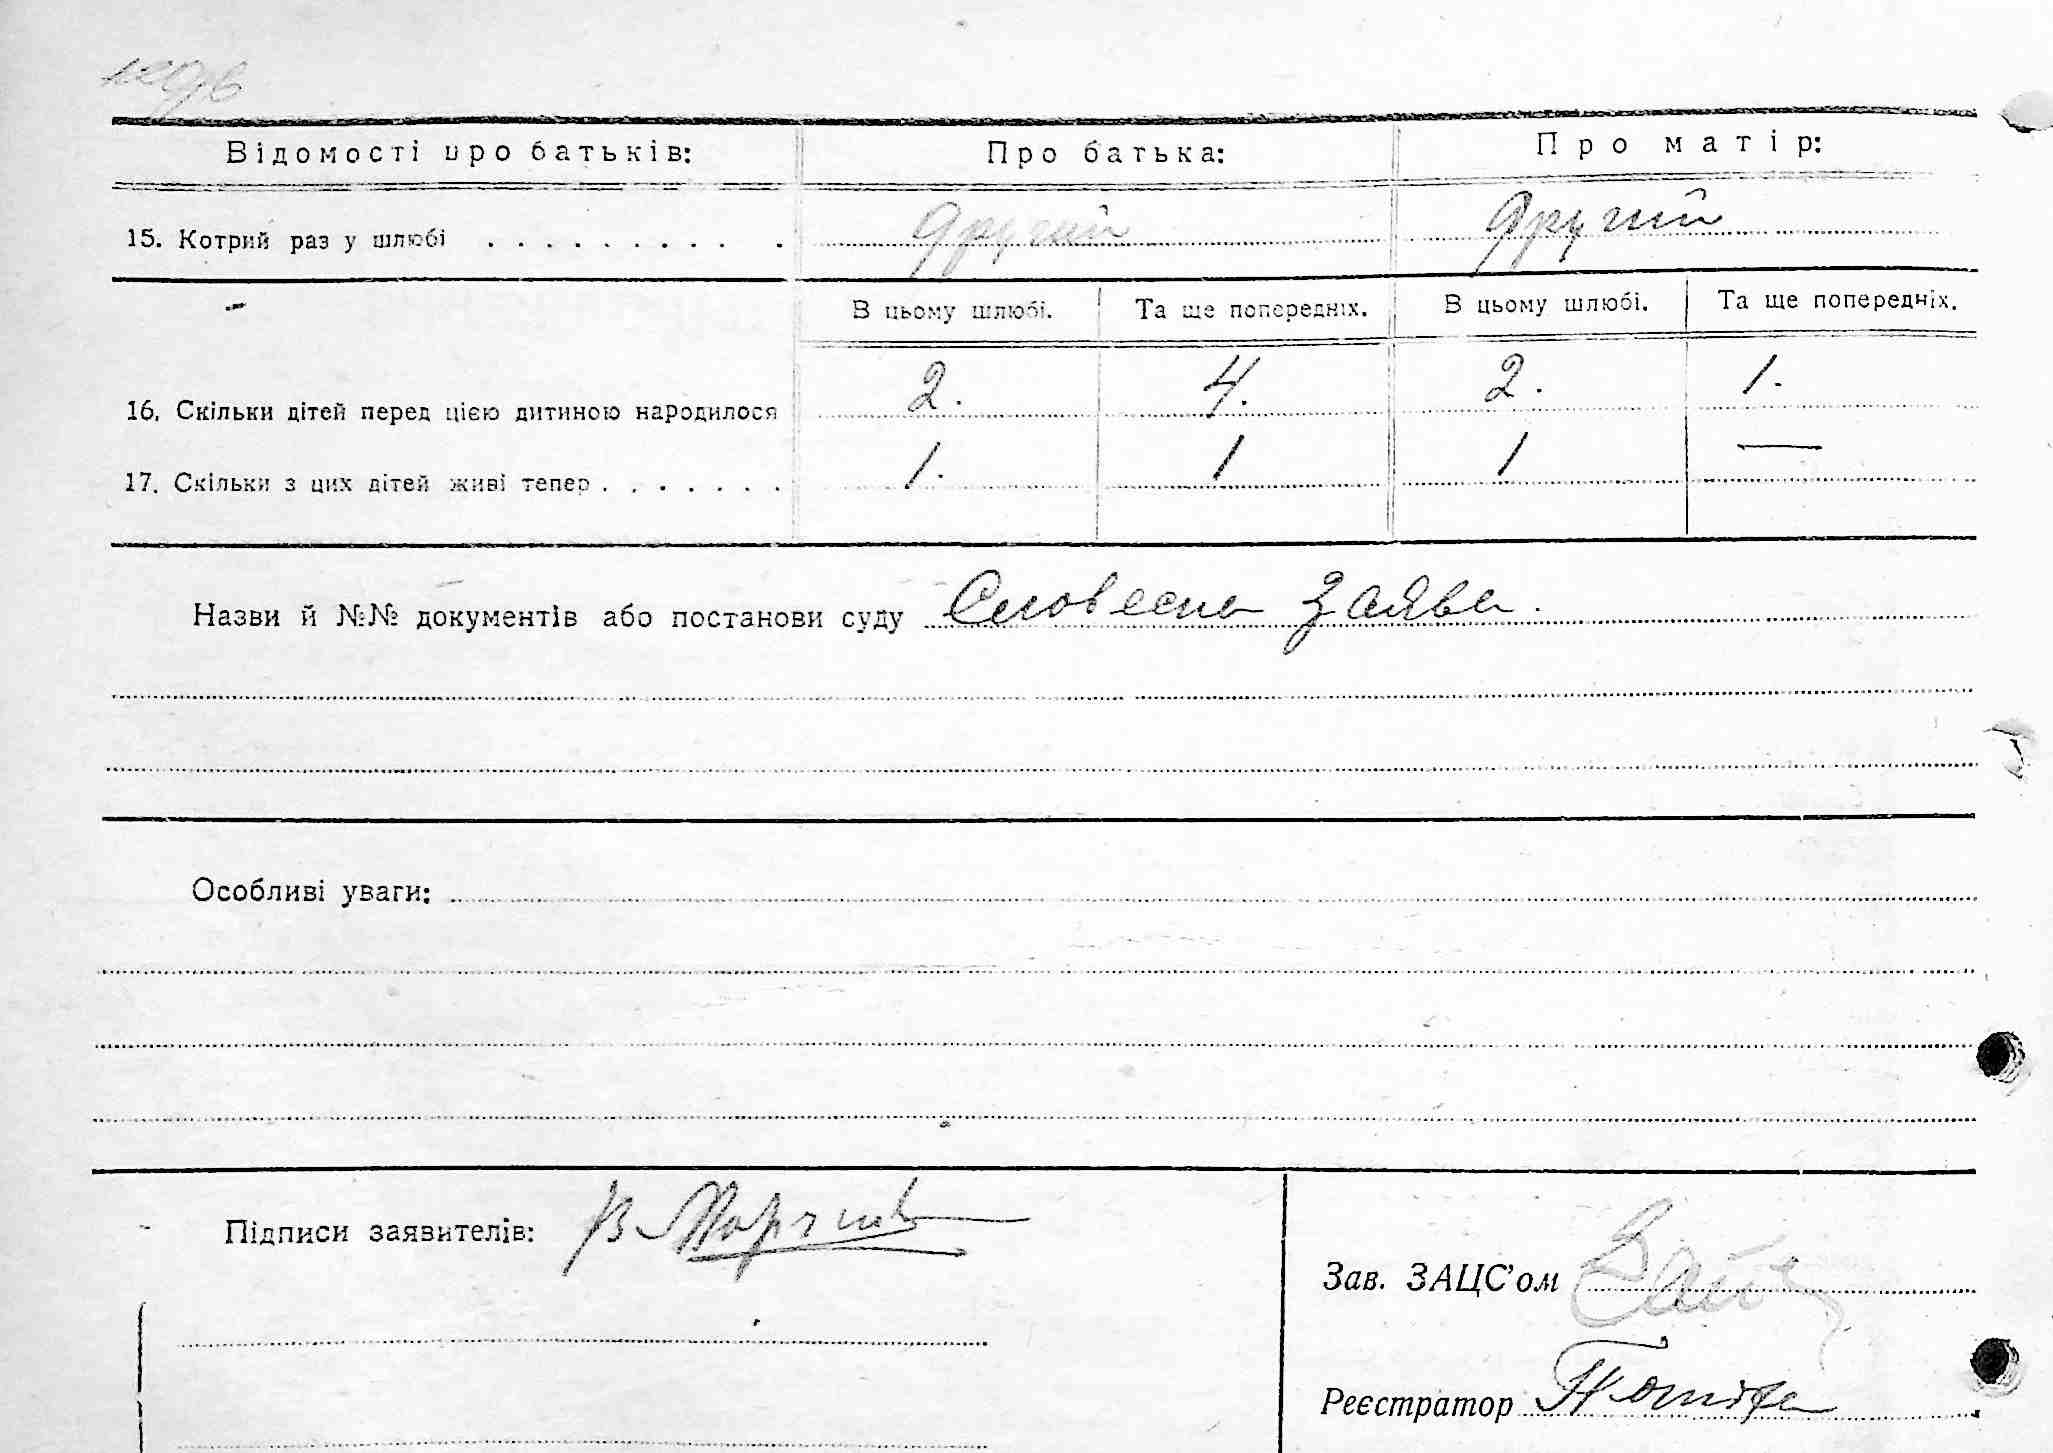 Відомості про батьків: Про батька: Про матір:
15. Котрий раз у шлюбі . . . . . . . . . . другий другий
В цьому шлюбі. Та ще попередніх. В цьому шлюбі. Та ще попередніх.
16. Скільки дітей перед цією дитиною народилося 2. 4. 2. 1.
17. Скільки з цих дітей живі тепер . . . . . . . 1. 1 1 —
Назви й №№ документів або постанови суду Словесна заява.
Особливі уваги:
Підписи заявителів:
Зав. ЗАЦС'ом
Реєстратор